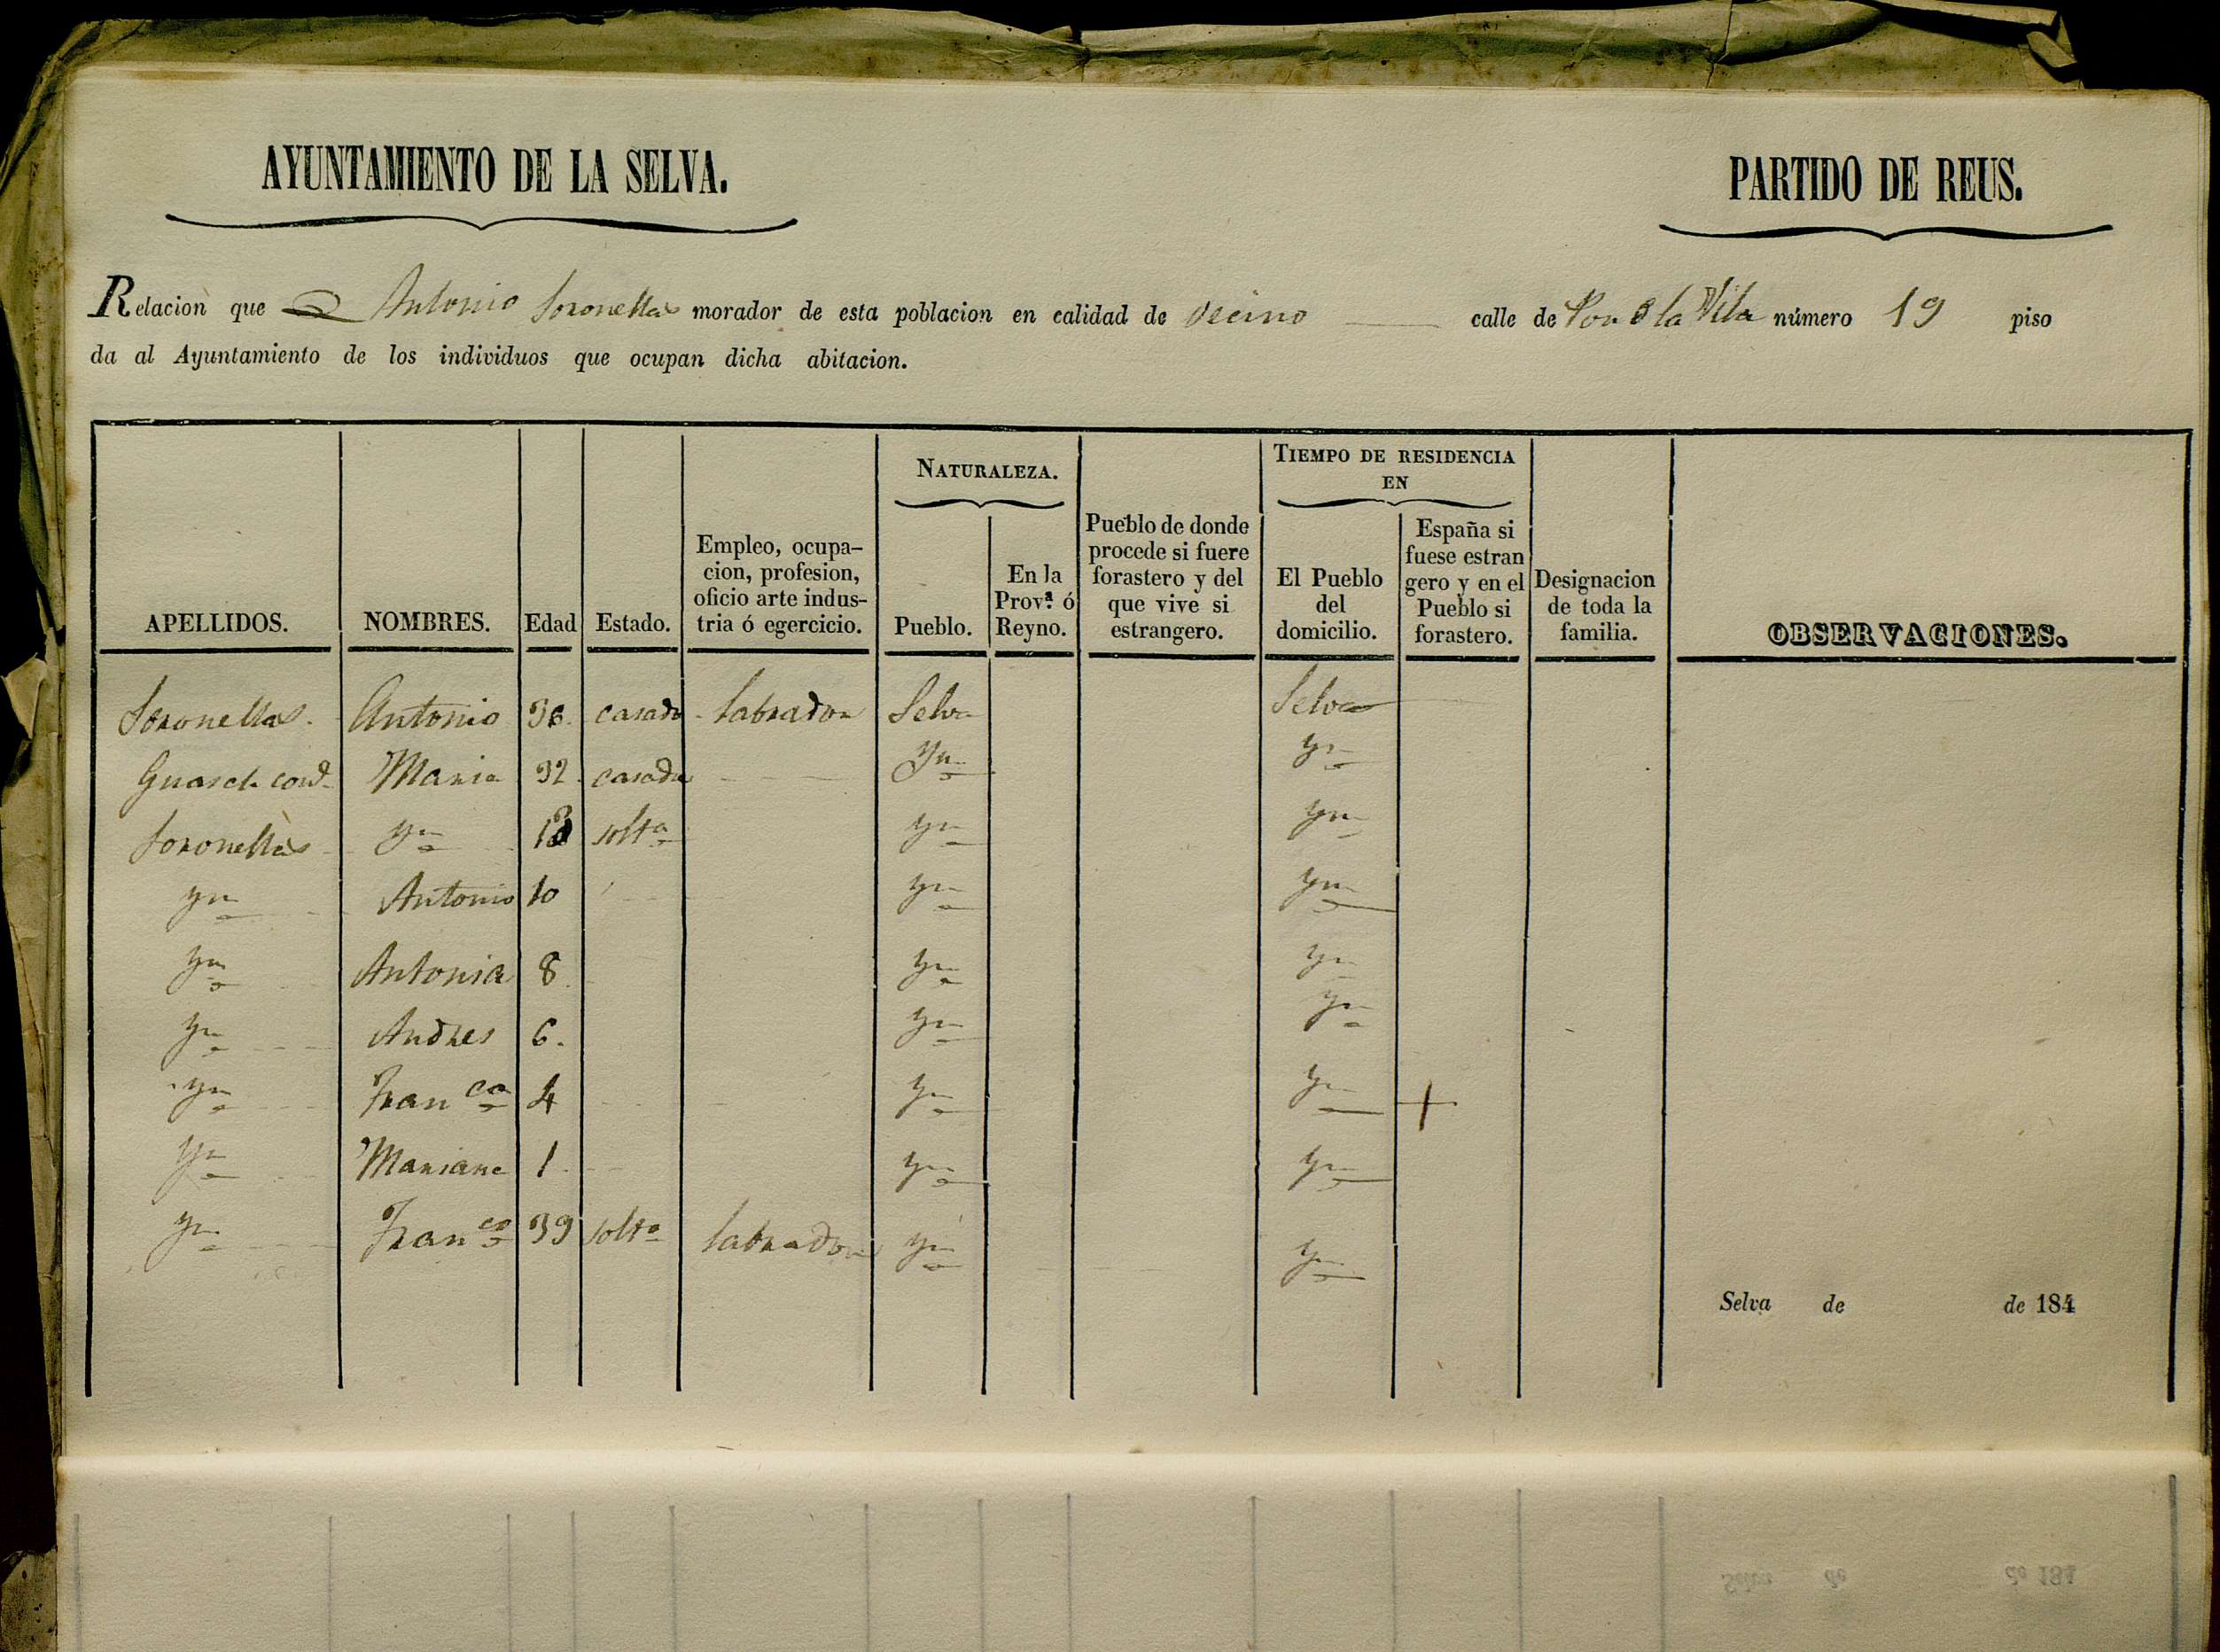 AYUNTAMIENTO DE LA SELVA.
PARTIDO DE REUS.
Relacion que Antonio Soronellas morador de esta poblacion en calidad de vecino calle de la Vila número 19 piso
da al Ayuntamiento de los individuos que ocupan dicha abitacion.
NATURALEZA. TIEMPO DE RESIDENCIA EN
APELLIDOS. NOMBRES. Edad Estado. Empleo, ocupacion, profesion, oficio arte industria ó egercicio. Pueblo. En la Prov.ª ó Reyno. Pueblo de donde procede si fuere forastero y del que vive si estrangero. El Pueblo del domicilio. España si fuese estrangero y en el Pueblo si forastero. Designacion de toda la familia. OBSERVACIONES.
Soronellas. Antonio 36. casado labrador Selva Selva
Guasch Maria 32 casada Yn Yn
Soronellas Yn solta Yn Yn
Yn Antonio 10 Yn Yn
Yn Antonia 8 Yn Yn
Yn Andres 6. Yn Yn
Yn Franca 4 Yn Yn +
Yn Mariana 1 Yn Yn
Yn Franco 39 solto labrador Yn Yn
Selva de de 184